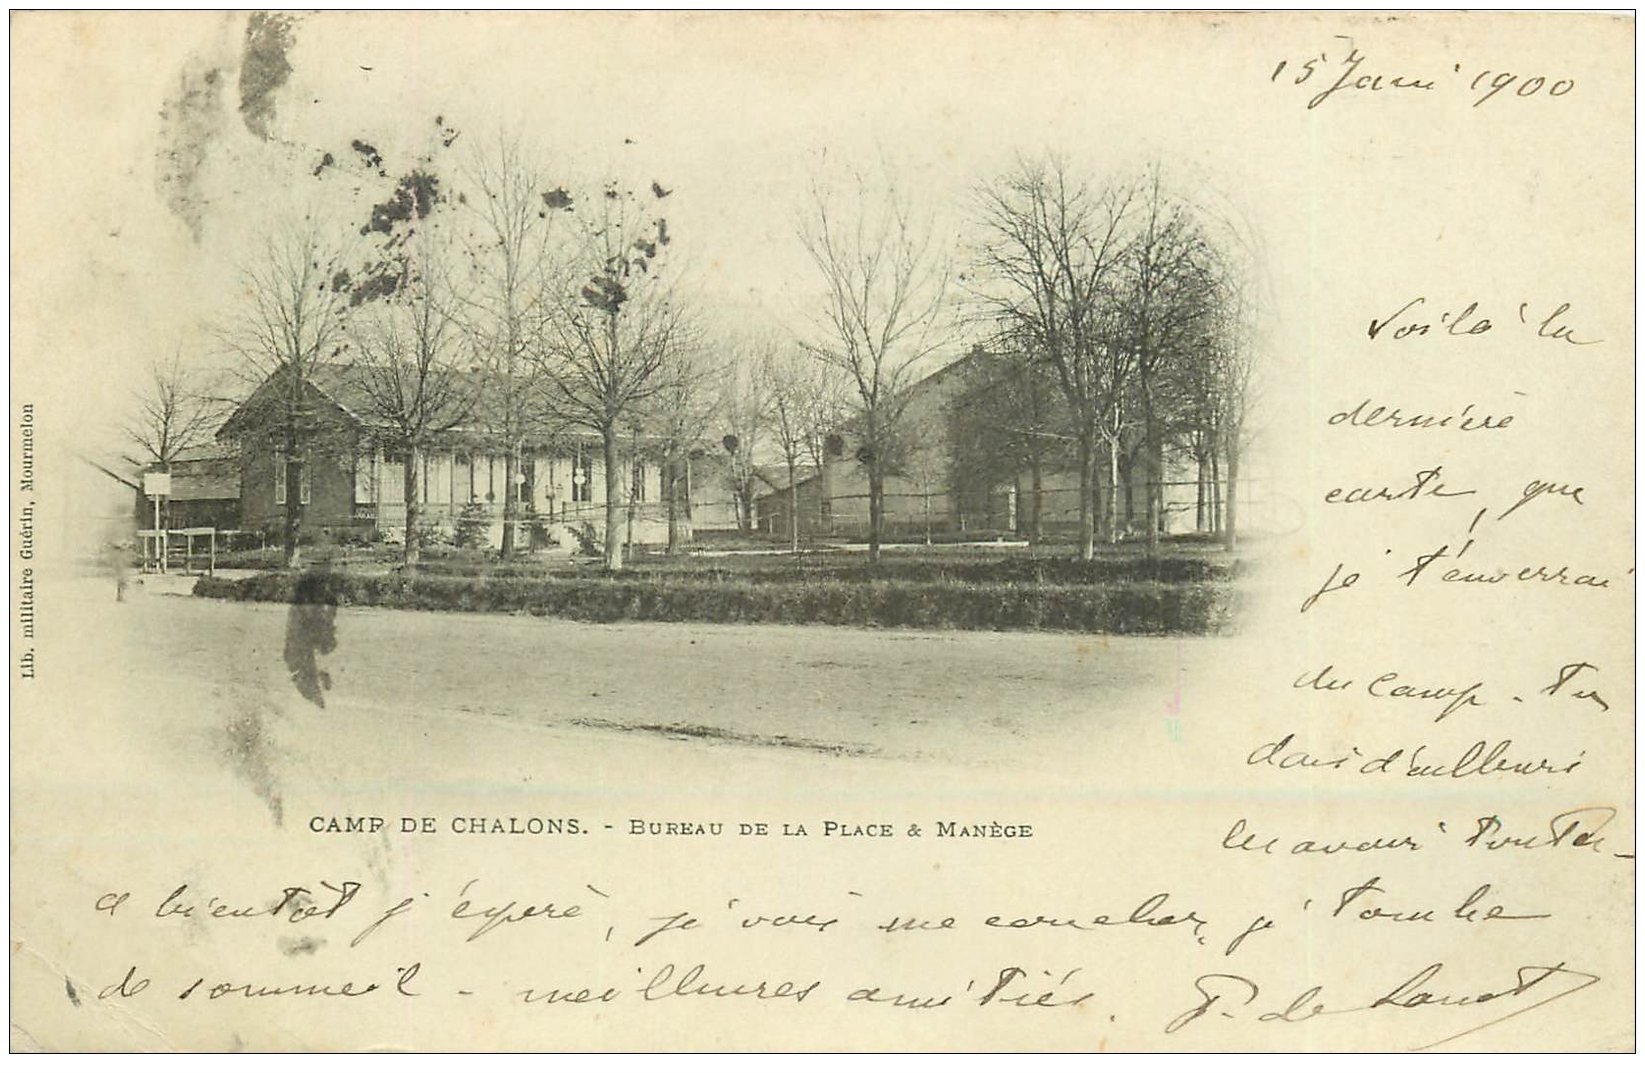 15 Janv 1900
Voilà la
dernière
carte, que
je t'enverrai
du Camp. Tu
dois d'ailleurs
les avoir toutes
CAMP DE CHALONS. - BUREAU DE LA PLACE & MANÈGE
a bientôt j'espère, je vais me coucher, je tombe
de sommeil - meilleures amitiés.
P. de
Lib. militaire Guérin, Mourmelon